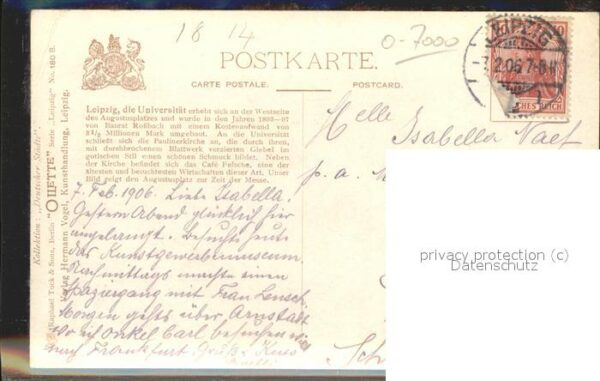 18 14
0-7000
POSTKARTE.
CARTE POSTALE.
POSTCARD.
LEIPZIG
2.06 7-8
CHES REICH
Kollektion: „Deutscher Städte".
Raphael Tuck & Sons, Berlin "OILETTE" Serie „Leipzig" No. 180 B.
Verlag Hermann Vogel, Kunsthandlung, Leipzig.
Leipzig, die Universität erhebt sich an der Westseite
des Augustusplatzes und wurde in den Jahren 1893—97
von Baurat Roßbach mit einem Kostenaufwand von
2½ Millionen Mark umgebaut. An die Universität
schließt sich die Paulinerkirche an, die durch ihren,
mit durchbrochenem Blattwerk verzierten Giebel im
gotischen Stil einen schönen Schmuck bildet. Neben
der Kirche befindet sich das Café Felsche, eine der
ältesten und besuchtesten Wirtschaften dieser Art. Unser
Bild zeigt den Augustusplatz zur Zeit der Messe.
7. Feb. 1906. Liebe Isabella.
Gestern Abend glücklich hier
angelangt. Besuchte heute
das Kunstgewerbemuseum
Nachmittags machte einen
Spaziergang mit Frau
Morgen gehts über Arnstadt
wo ich Onkel Carl besuchen
nach Frankfurt. Gruß & Kuss
Melle
Isabella Naef
p. a.
Sch
privacy protection (c)
Datenschutz